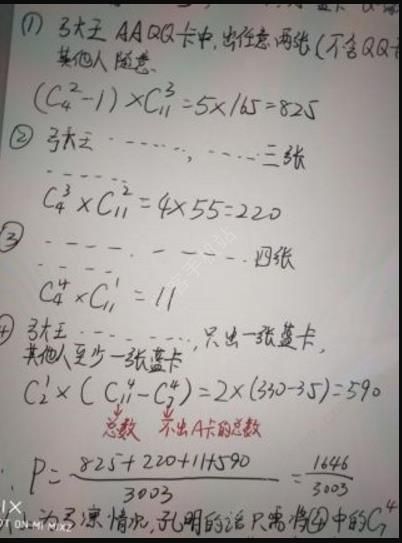 (1) 弓大王 AAQQ卡中,出任意两张(不含QQ卡
其他人随意.
(C₄²-1)×C₁₁³=5×165=825
② 弓大王 ……, …… 三张
……
C₄³×C₁₁²=4×55=220
③ …… …… 四张
……
C₄⁴×C₁₁¹=11
④ 弓大王 ……,只出一张蓝卡,
其他人至少一张蓝卡
C₂¹×(C₁₁⁴-C₇⁴)=2×(330-35)=590
总数 不出A卡的总数
P=(825+220+11+590)/3003=1646/3003
情况,孔明的话只需将④中的C₇⁴
MI MIX2